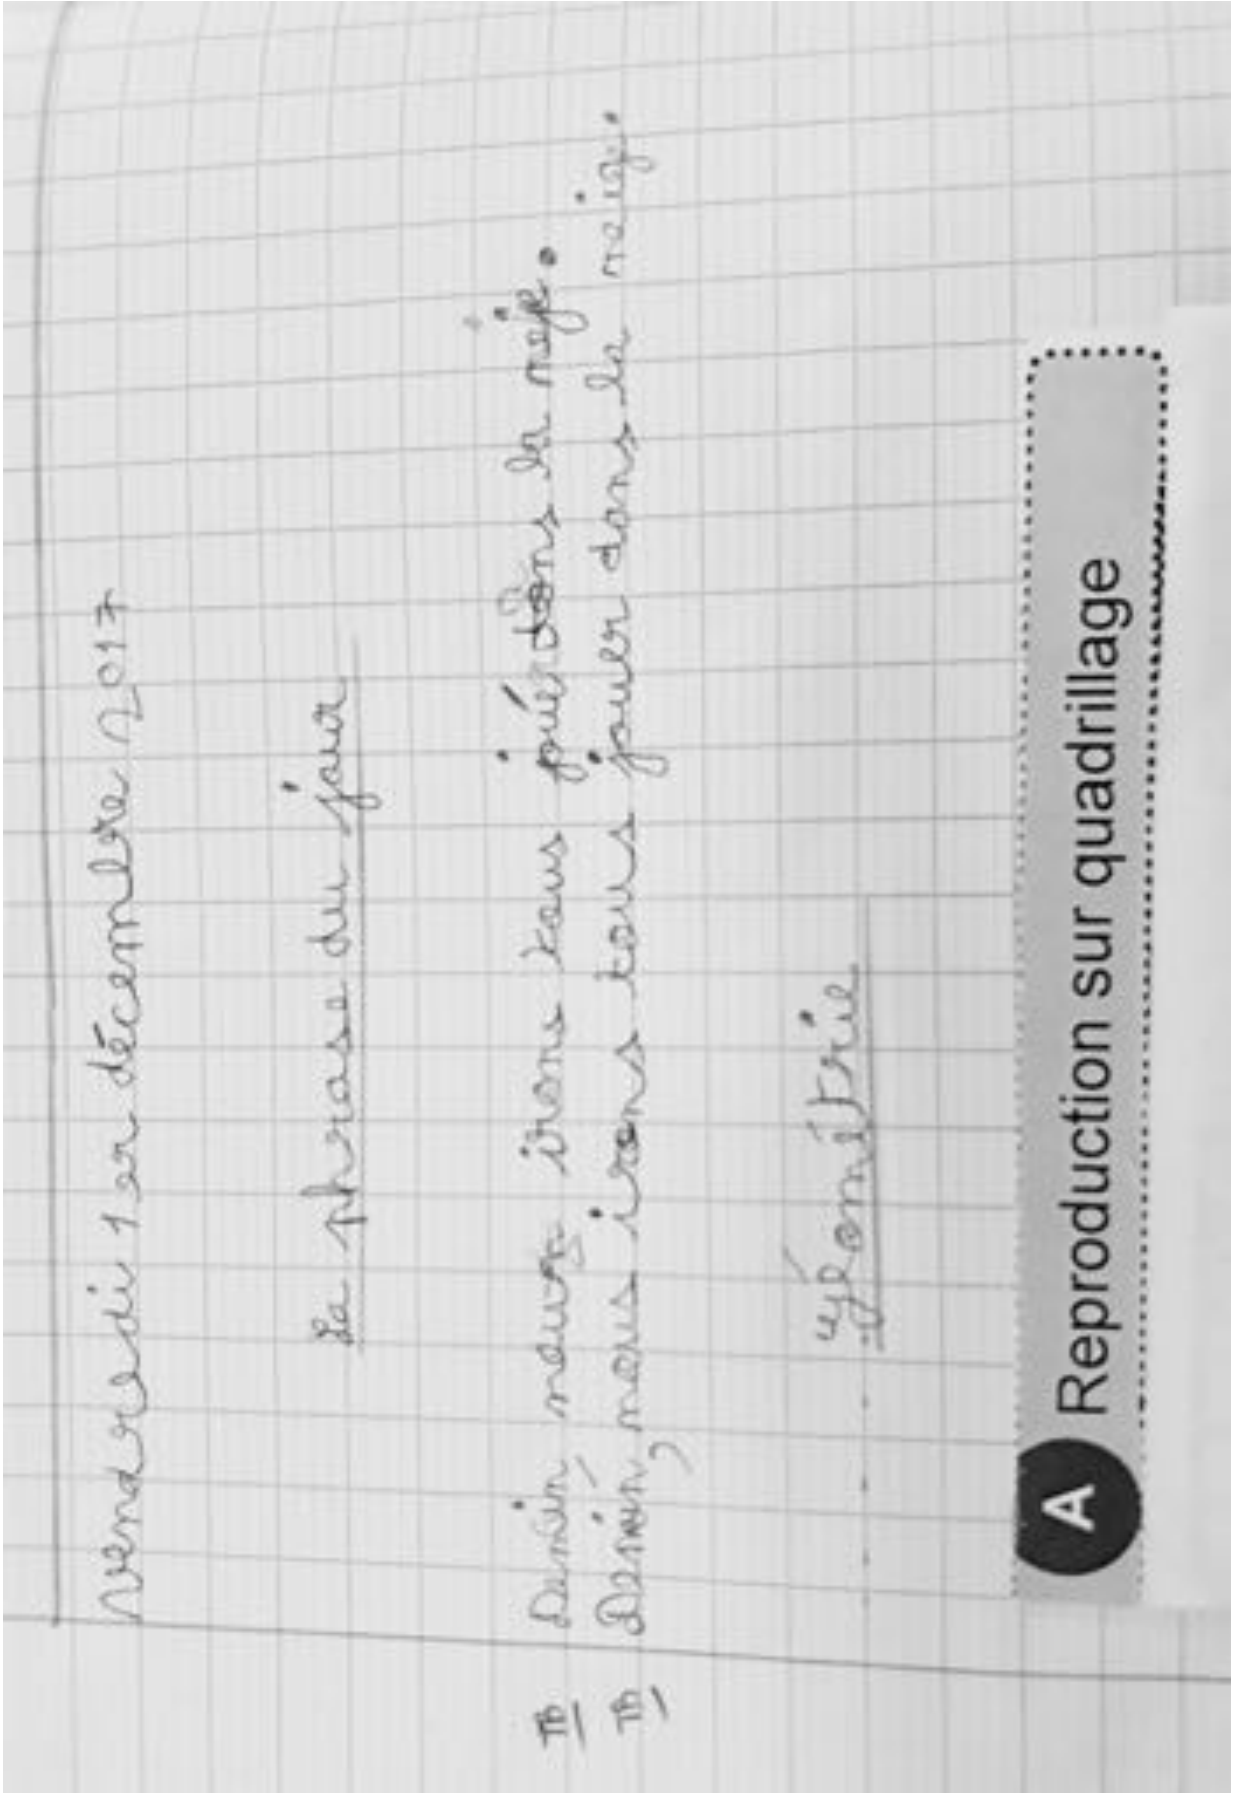 vendredi 1er décembre 2017
La phrase du jour
TB Demain, nous irons tous jouer dans la neje.
TB Demain, nous irons tous jouer dans la neig.
géométrie
A Reproduction sur quadrillage